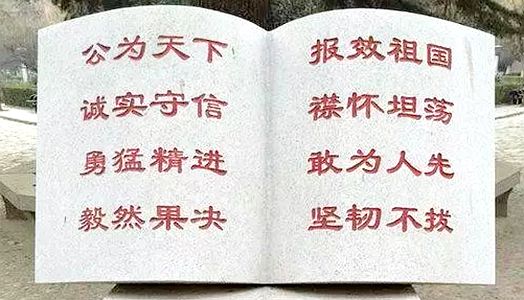 公为天下 报效祖国
诚实守信 襟怀坦荡
勇猛精进 敢为人先
毅然果决 坚韧不拔